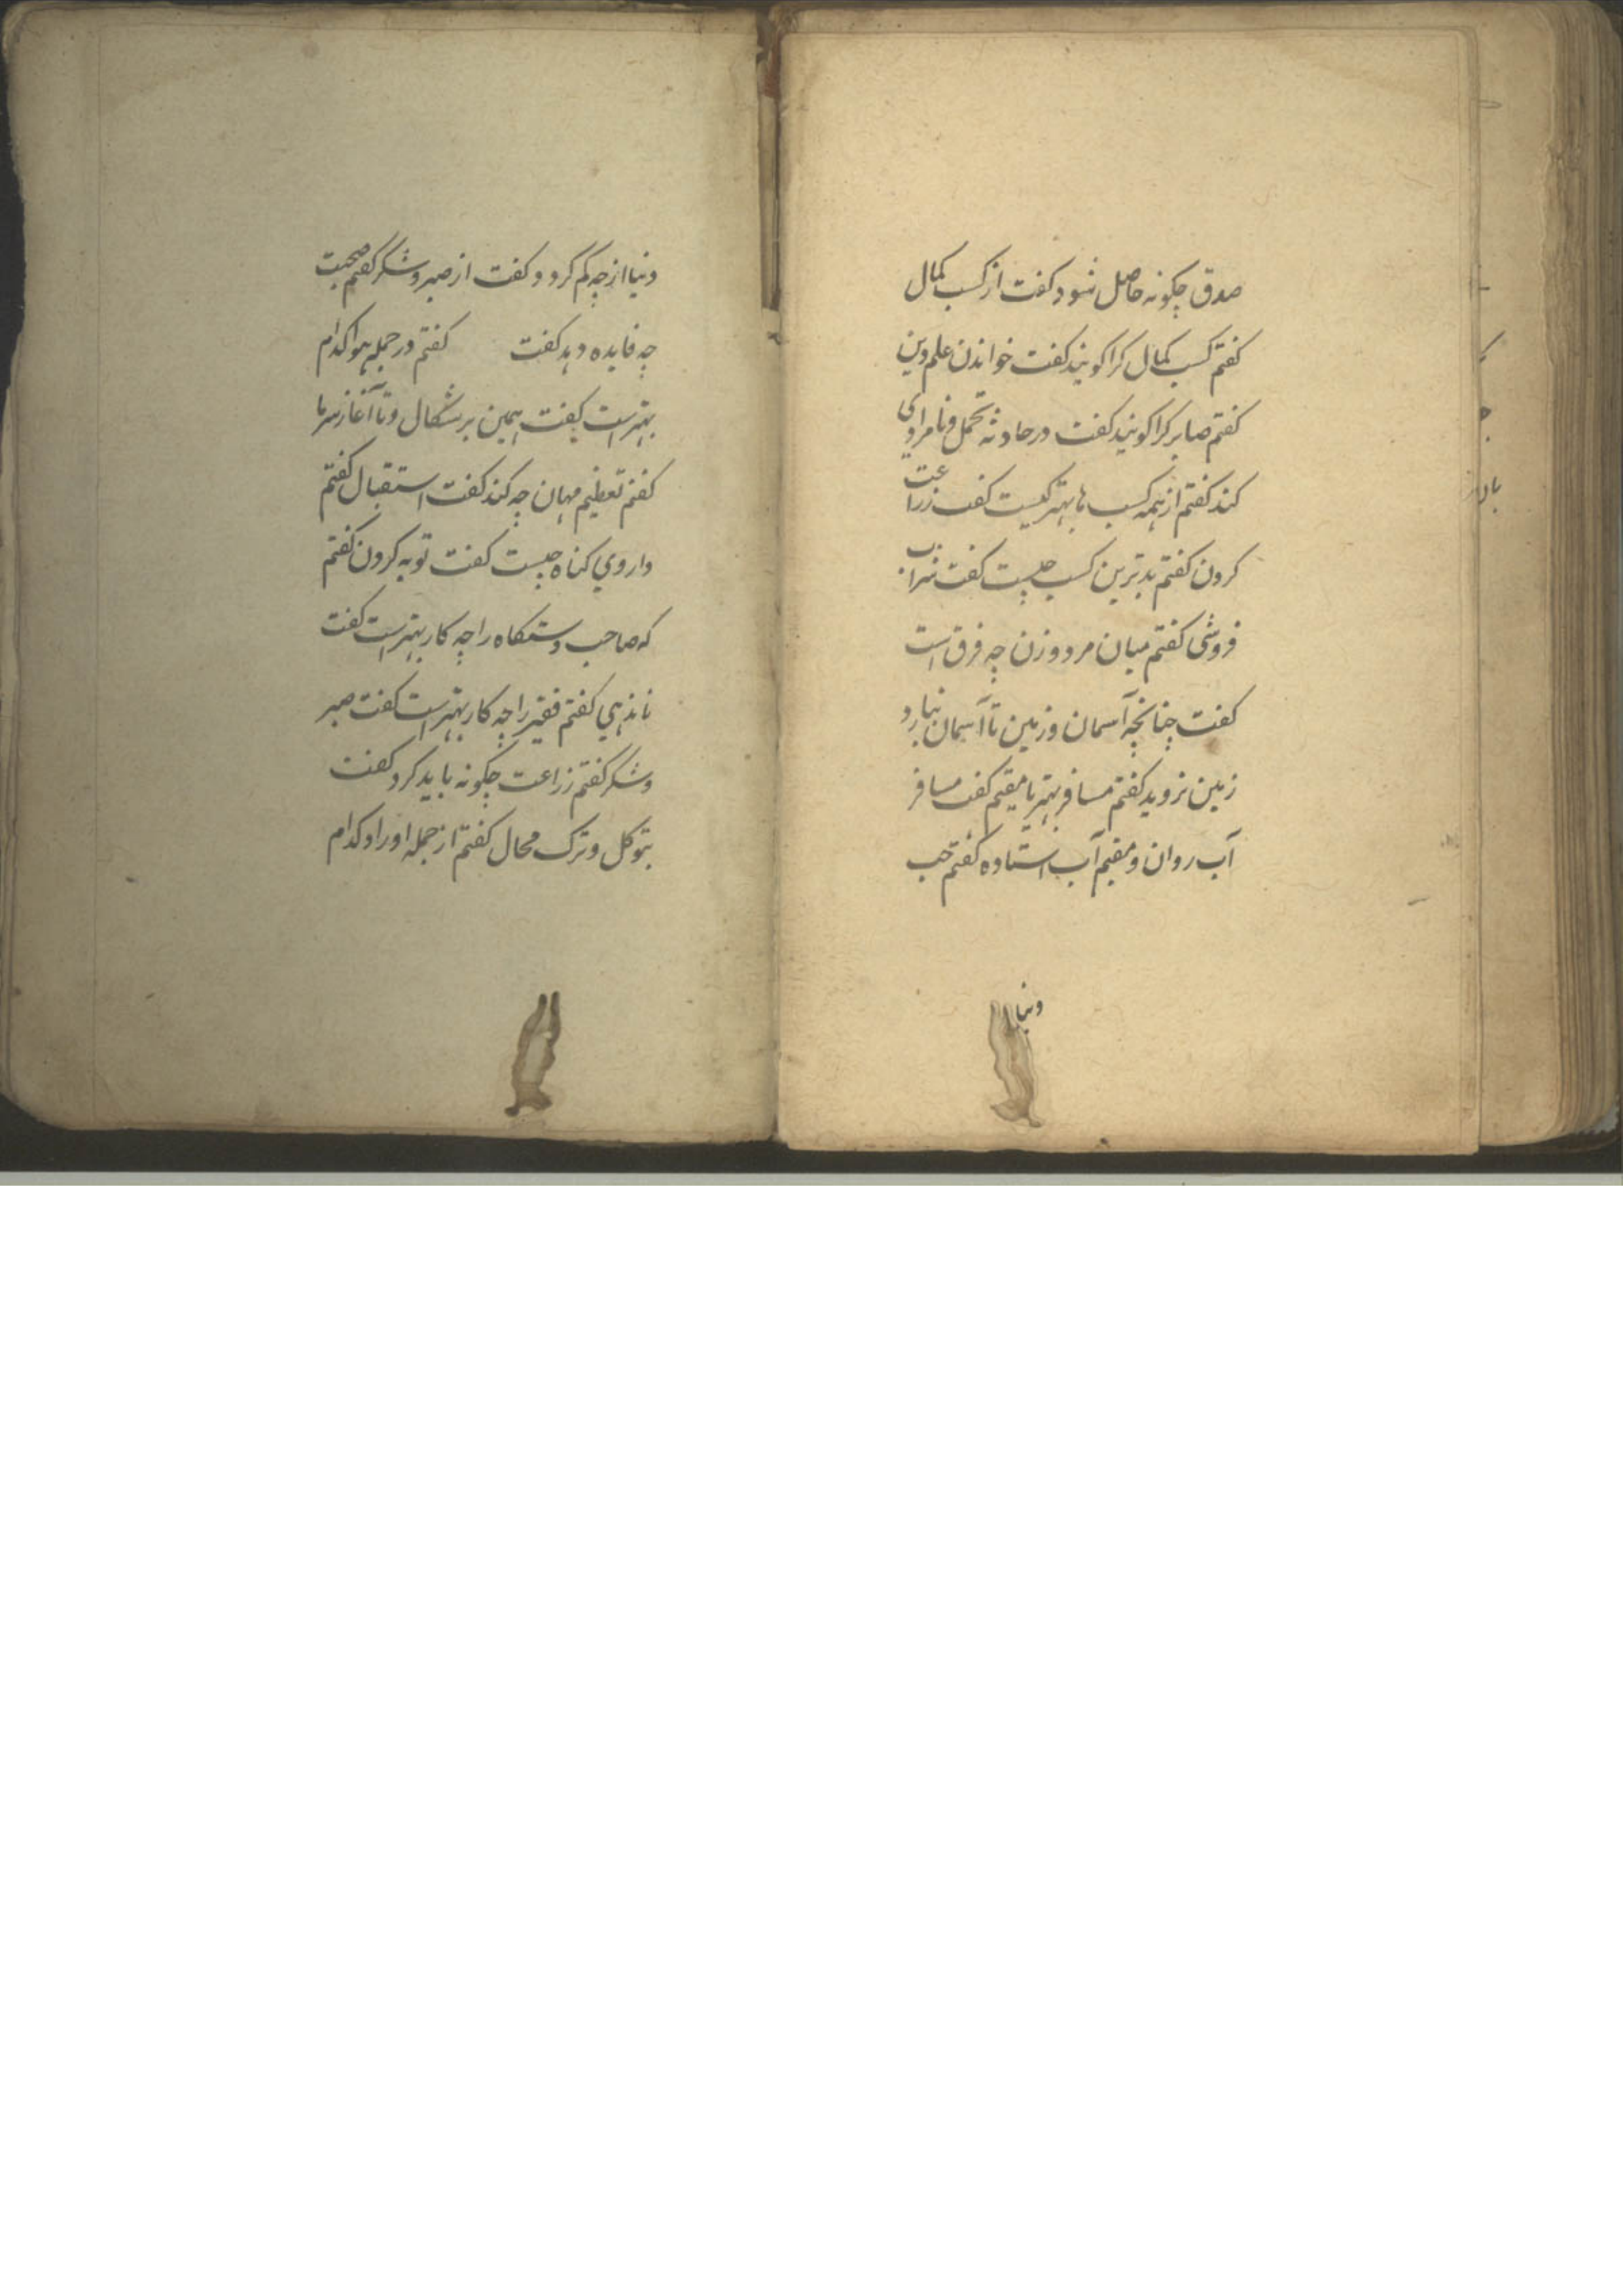 صدق چکونه حاصل شود کفت از کسب کمال
کفتم کسب کمال کرا کویند کفت خواندن علم دین
کفتم صابر کرا کویند کفت در حادثه تحمل و نامرادی
کند کفتم از همه کسب ها بهتر کیست کفت زراعت
کردن کفتم بدترین کسب چیست کفت شراب
فروشی کفتم میان مرد و زن چه فرق است
کفت چنانچه آسمان و زمین تا آسمان نبارد
زمین نروید کفتم مسافر بهتر یا مقیم کفت مسافر
آب روان و مقیم آب استاده کفتم حب
دنیا
دنیا از چه کم کردد کفت از صبر و شکر کفتم صحبت
چه فایده دهد کفت کفتم در جمله هوا کدام
بهتر است کفت همین برشکال و تا آغاز سرما
کفتم تعظیم مهمان چه کند کفت استقبال کفتم
داروی کناه چیست کفت توبه کردن کفتم
که صاحب دستکاه را چه کار بهتر است کفت
ناندهی کفتم فقیر را چه کار بهتر است کفت صبر
و شکر کفتم زراعت چکونه باید کرد کفت
بتوکل و ترک محال کفتم از جمله اوراد کدام